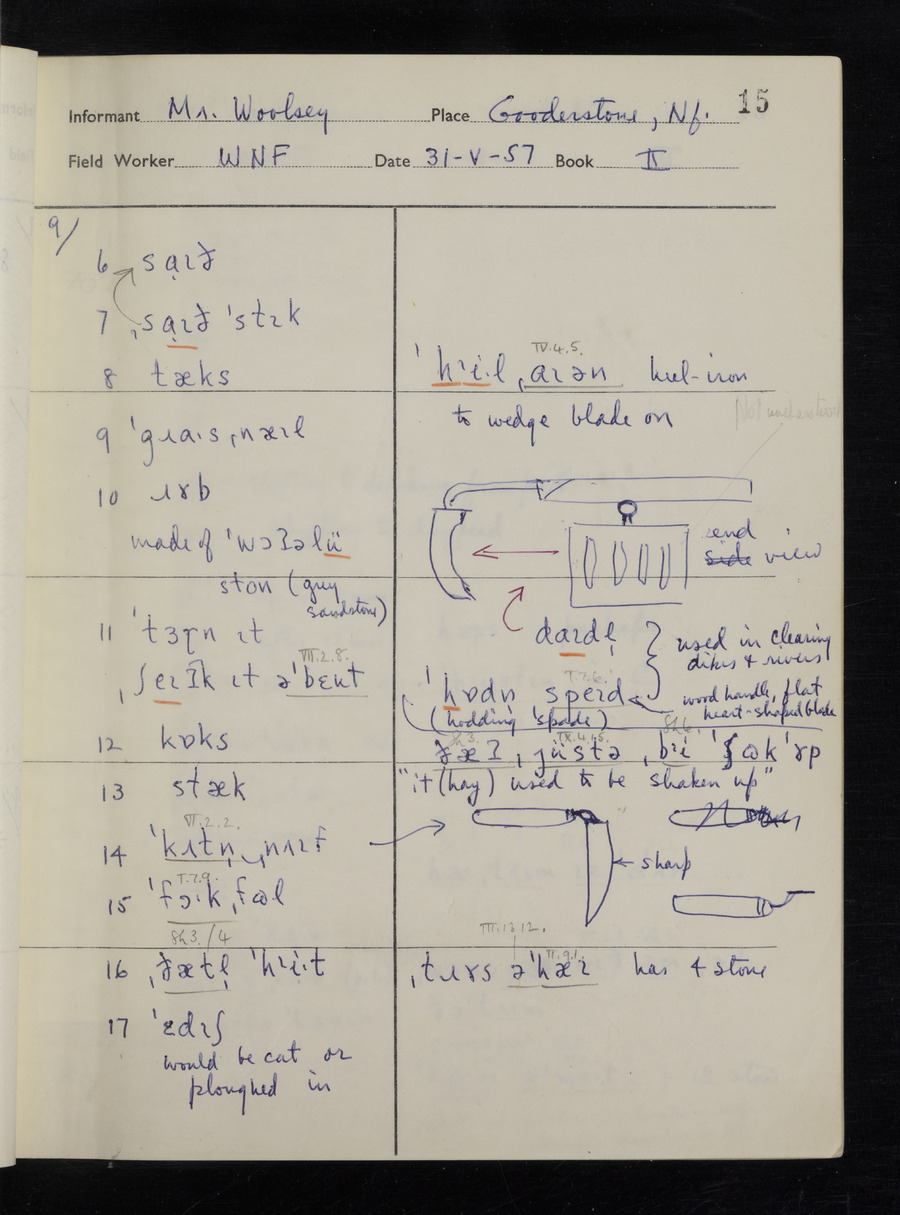 15
Informant Mr. Woolsey Place Gooderstone, Nf.
Field Worker WNF Date 31-V-57 Book II
9/
6 sạɪð
7 ˌsạɪð ˈstɪk
8 tæks
9 ˈgɹaˑsˌnæɪl
10 ɹɤb
made of ˈwɔʔəlü
ston (grey
sandstone)
11 ˈtɜːn ɪt
VII.2.8.
ˌʃeɪk ɪt əˈbɛut
12 kɒks
13 stæk
VII.2.2.
14 ˈkɪtn̩
I.7.9.
15 ˈfɔˑkˌfʊl
Sh 3./4
16 ˌðætl̩ ˈhɪiˑt
17 ˈɛdɪʃ
would be cut or
ploughed in
IV.4.5.
ˈhɪiˑlˌaɪən heel-iron
to wedge blade on
Not understood
end
side view
daɪdl̩
used in clearing
dikes & rivers
I.7.6.
ˈhɒdn speɪd
(hodding ˈspade)
wood handle, flat
heart-shaped blade
Sh 3. IX.4.15. Sh 6.
ðæʔ ˌjüstə ˌbɪi ˈʃʊkˈɤp
"it (hay) used to be shaken up"
sharp
III.13.12.
II.9.1.
ˌtɹɤs əˈhæɪ has 4 stone